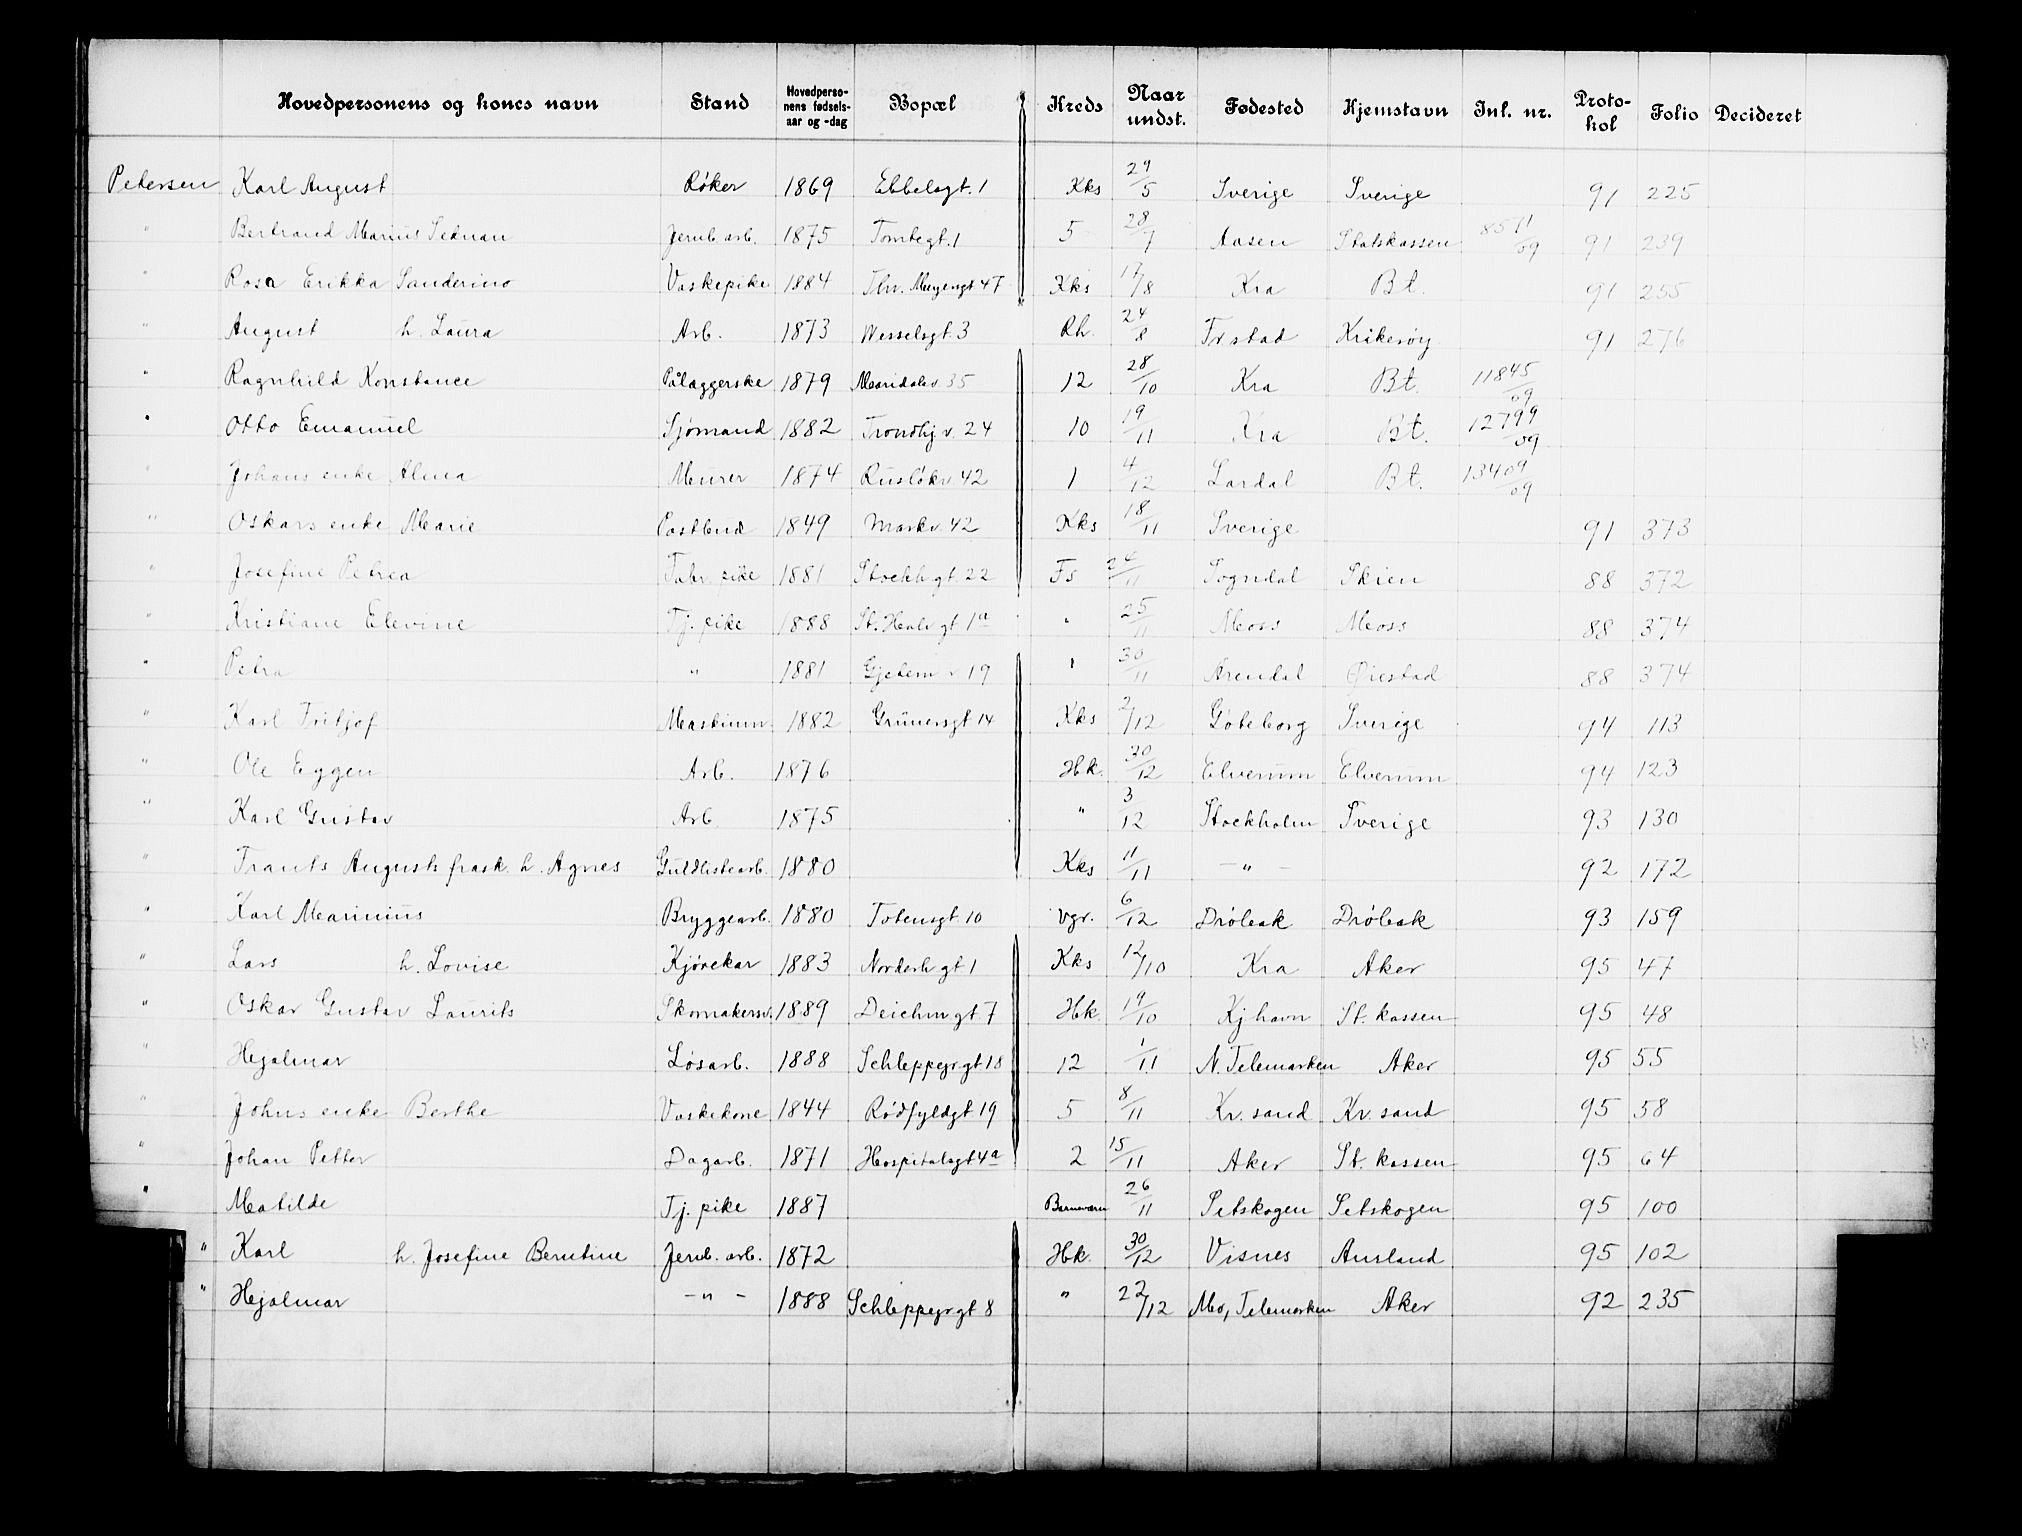 Hovedpersonens og kones navn Stand Hovedperso-nens fødsels-aar og -dag Bopæl Kreds Naar undst. Fødested Hjemstavn Int. nr. Proto-kol Folio Decideret
Petersen Karl August Røker 1869 Ebbelsgt. 1 Kks 29/5 Sverige Sverige 91 225
" Bertrand Marius Jernb. arb. 1875 Tomtegt. 1 5 28/7 Aasen Statskassen 8571/09 91 239
" Rosa Erikka Sanderine Vaskepike 1884 Thv. Meyersgt 47 Kks 17/8 Kra Bt. 91 255
" August h. Laura Arb. 1873 Wesselsgt. 3 Rh. 24/8 Fr.stad Kråkerøy 91 276
" Ragnhild Konstance Pålæggerske 1879 Maridalsv. 35 12 28/10 Kra Bt. 11845/09
" Otto Emanuel Sjømand 1882 Trondhj. v. 24 10 19/11 Kra Bt. 12799/09
" Johans enke Alma Murer 1874 Rusløkv. 42 1 4/12 Lardal Bt. 13409/09
" Oskars enke Marie Postbud 1849 Markv. 42 Kks 18/11 Sverige 91 373
" Josefine Petrea Fabr. pike 1881 Stockh.gt. 22 Fs 26/11 Sogndal Skien 88 372
" Kristiane Elevine Tj. pike 1888 St. Halv. gt 1a " 25/11 Moss Moss 88 374
" Petra " 1881 Gjetem. v 19 " 30/11 Arendal Øiestad 88 374
" Karl Fritjof Maskinm. 1882 Grünersgt 14 Kks 2/12 Gøteborg Sverige 94 113
" Ole Eggen Arb. 1876 Hk. 30/12 Elverum Elverum 94 123
" Karl Gustav Arb. 1875 " 3/12 Stockholm Sverige 93 130
" Frants August frask. h. Agnes Guldlistearb. 1880 Kks 11/11 - " - 92 172
" Karl Marinius Bryggearb. 1880 Totensgt. 10 Vgr. 6/12 Drøbak Drøbak 93 159
" Lars h. Lovise Kjørekar 1883 Norderh. gt 1 Kks 12/10 Kra Aker 95 47
" Oskar Gustav Laurits Skomakersv. 1889 Deichm gt 7 Hk. 19/10 Kjhavn St. kassen 95 48
" Hjalmar Løsarb. 1888 Schleppegr gt 18 12 1/11 N. Telemarken Aker 95 55
" Johns enke Berthe Vaskekone 1844 Rødfyldgt 19 5 8/11 Kr. sand Kr. sand 95 58
" Johan Petter Dagarb. 1871 Hospitalsgt 4a 2 15/11 Aker St. kassen 95 64
" Matilde Tj. pike 1887 Barneværn 26/11 Setskogen Setskogen 95 100
" Karl h. Josefine Berntine Jernb. arb. 1872 Hk. 30/12 Visnes Aurland 95 102
" Hjalmar - " - 1888 Schleppegr gt 8 " 22/12 Mo, Telemarken Aker 92 235